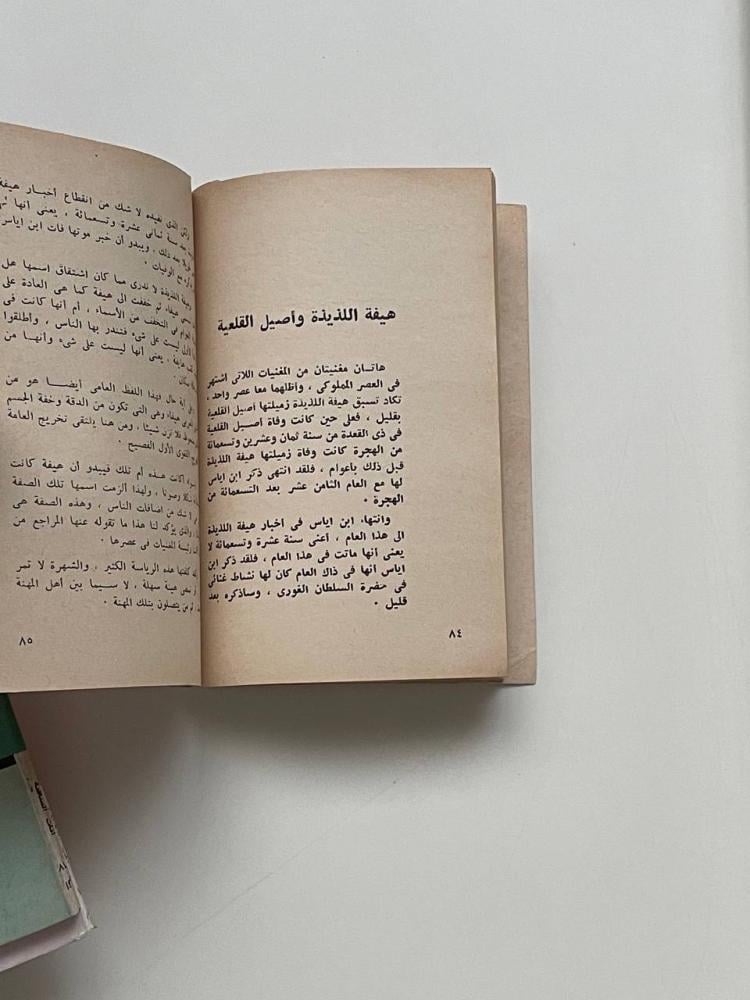 هيفة اللذيذة وأصيل القلعية
هاتـان مغنيتان من المغنيات اللائى اشتهر
فى العصر المملوكى ، وأظلهما معا عصر واحد ،
تكاد تسبق هيفة اللذيذة زميلتها أصيل القلعية
بقليل ، فعلى حين كانت وفاة أصـيل القلعية
فى ذى القعدة من سنة ثمان وعشرين وتسعمائة
من الهجرة كانت وفاة زميلتها هيفة اللذيذة
قبل ذلك بأعوام ، فلقد انتهى ذكر ابن اياس
لها مع العام الثامن عشر بعد التسعمائة من
الهجرة •
وانتهاء ابن اياس فى أخبار هيفة اللذيذة
الى هذا العام ، أعنى سنة عشرة وتسعمائة لا
يعنى أنها ماتت فى هذا العام ، فلقد ذكر ابن
اياس أنها فى ذاك العام كان لها نشاط غنائى
فى حضرة السلطان الغورى ، وسأذكره بعد
قليل •
٨٤
الذى نفيده لا شك من انقطاع أخبـار هيفة
سنة ثمانى عشرة وتسعمائة ، يعنى أنها
بعد ذلك ، ويبدو أن خبر موتها فات ابن اياس
مع الوفيات •
اللذيذة لا ندرى مما كان اشتقاق اسمها هل
هيفاء ثم خففت الى هيفة كما هى العادة على
فى التخفف من الأسماء ، أم أنها كانت فى
الأول ليست على شىء فتندر بها الناس ، وأطلقوا
هايفة ، يعنى أنها ليست على شىء وأنهـا من
أية حال فهذا اللفظ العامى أيضـا هو من
هيفاء وهى التى تكون من الدقة وخفة الجسم
فلا تزن شيئا ، ومن هنا يلتقى تخريج العامة
اللغوى الأول الفصيح •
أكانت هـذه أم تلك فيبدو أن هيفة كانت
شكلا وصوتا ، ولهذا ألزمت اسمها تلك الصفة
شك من اضافات الناس ، وهذه الصفة هى
والذى يؤكد لنا هذا ما تقوله عنها المراجع من
رئيسة المغنيات فى عصرها •
كلفتها هذه الرياسة الكثير ، والشهرة لا تمر
هينة سهلة ، لا سـيما بين أهل المهنة
من يتصلون بتلك المهنة •
٨٥